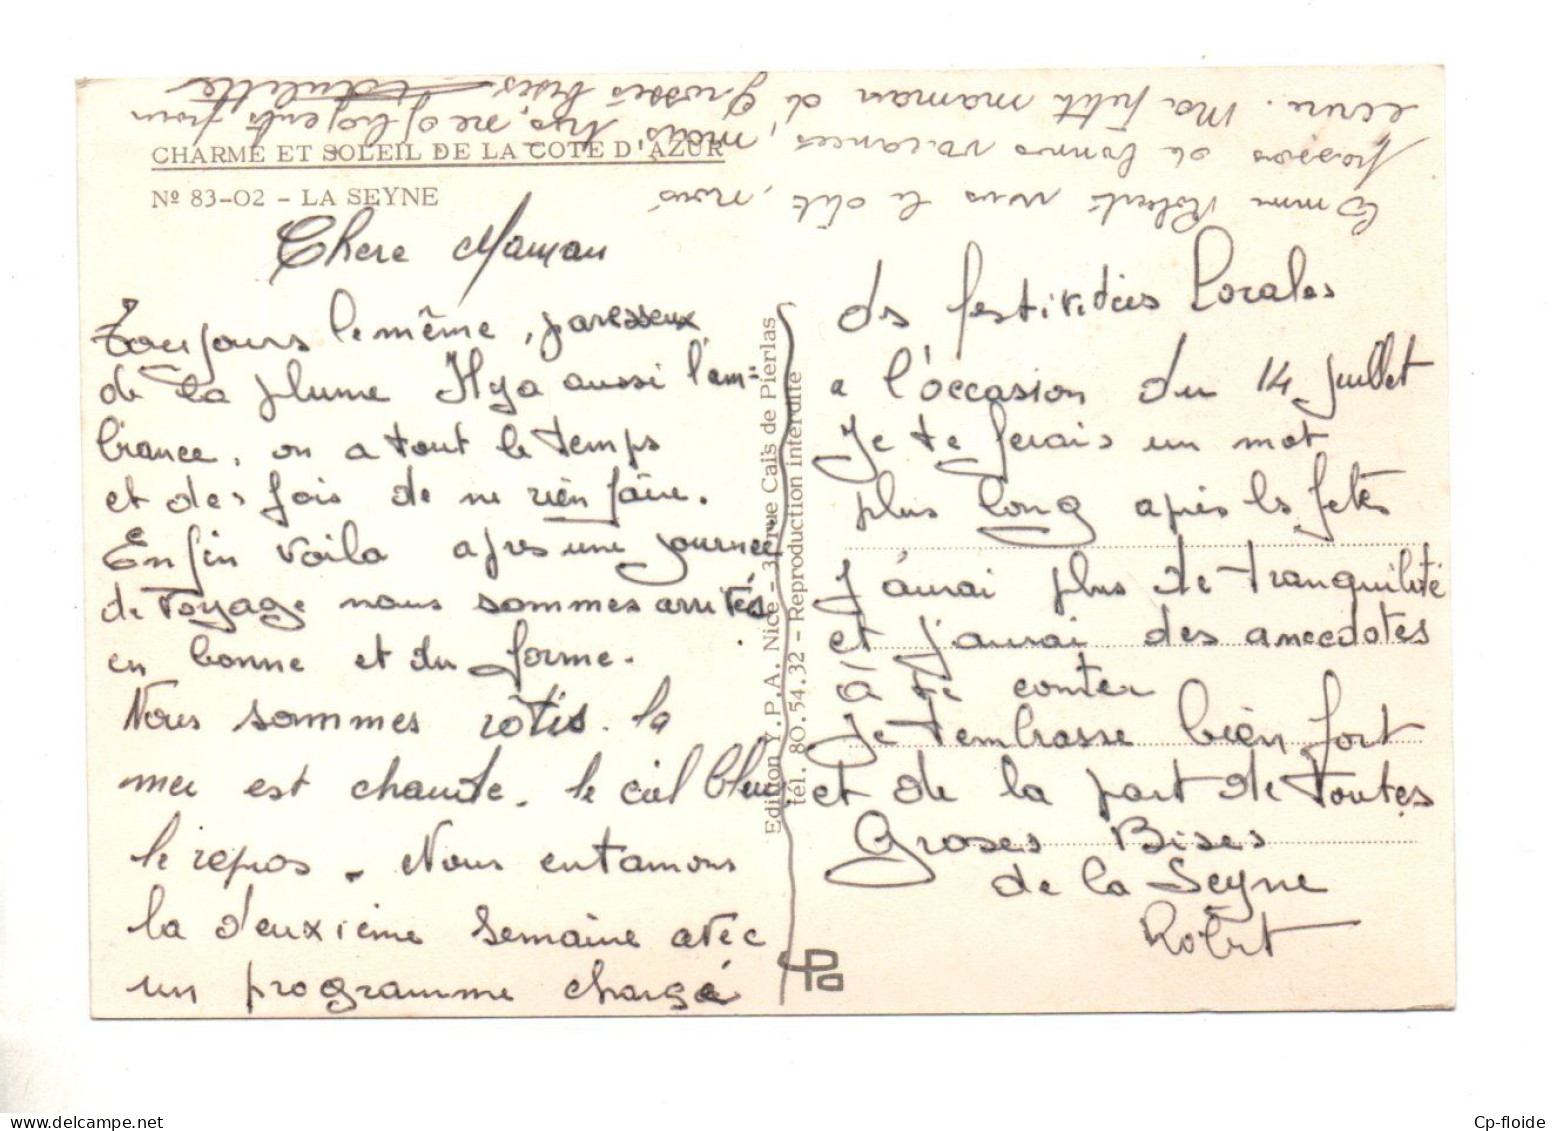 CHARME ET SOLEIL DE LA COTE D'AZUR
Nº 83-02 - LA SEYNE
Chere Maman
Toujours le même, paresseux
de la plume Il y a aussi l'am=
biance, on a tout le temps
et des fois de ne rien faire.
Enfin voila apres une journee
de voyage nous sommes arrivés
en bonne et du forme.
Nous sommes rôtis. la
mer est chaude. le ciel bleu,
le repos. Nous entamons
la deuxième semaine avec
un programme chargé
Edition Y.P.A. Nice - 3, rue Caïs de Pierlas
tél. 80.54.32 - Reproduction interdite
ds festividées Locales
a l'occasion du 14 juillet
Je te ferais un mot
plus long après ls fetes
J'aurai plus de tranquilité
et j'aurai des anecdotes
à te conter
Je t'embrasse bien fort
et de la part de toutes
Groses Bises
de la Seyne
Robert
Comme Robert vous le dit, nous
passons de bonnes vacances, mais
ecrire. Ma petit maman d grosses bises